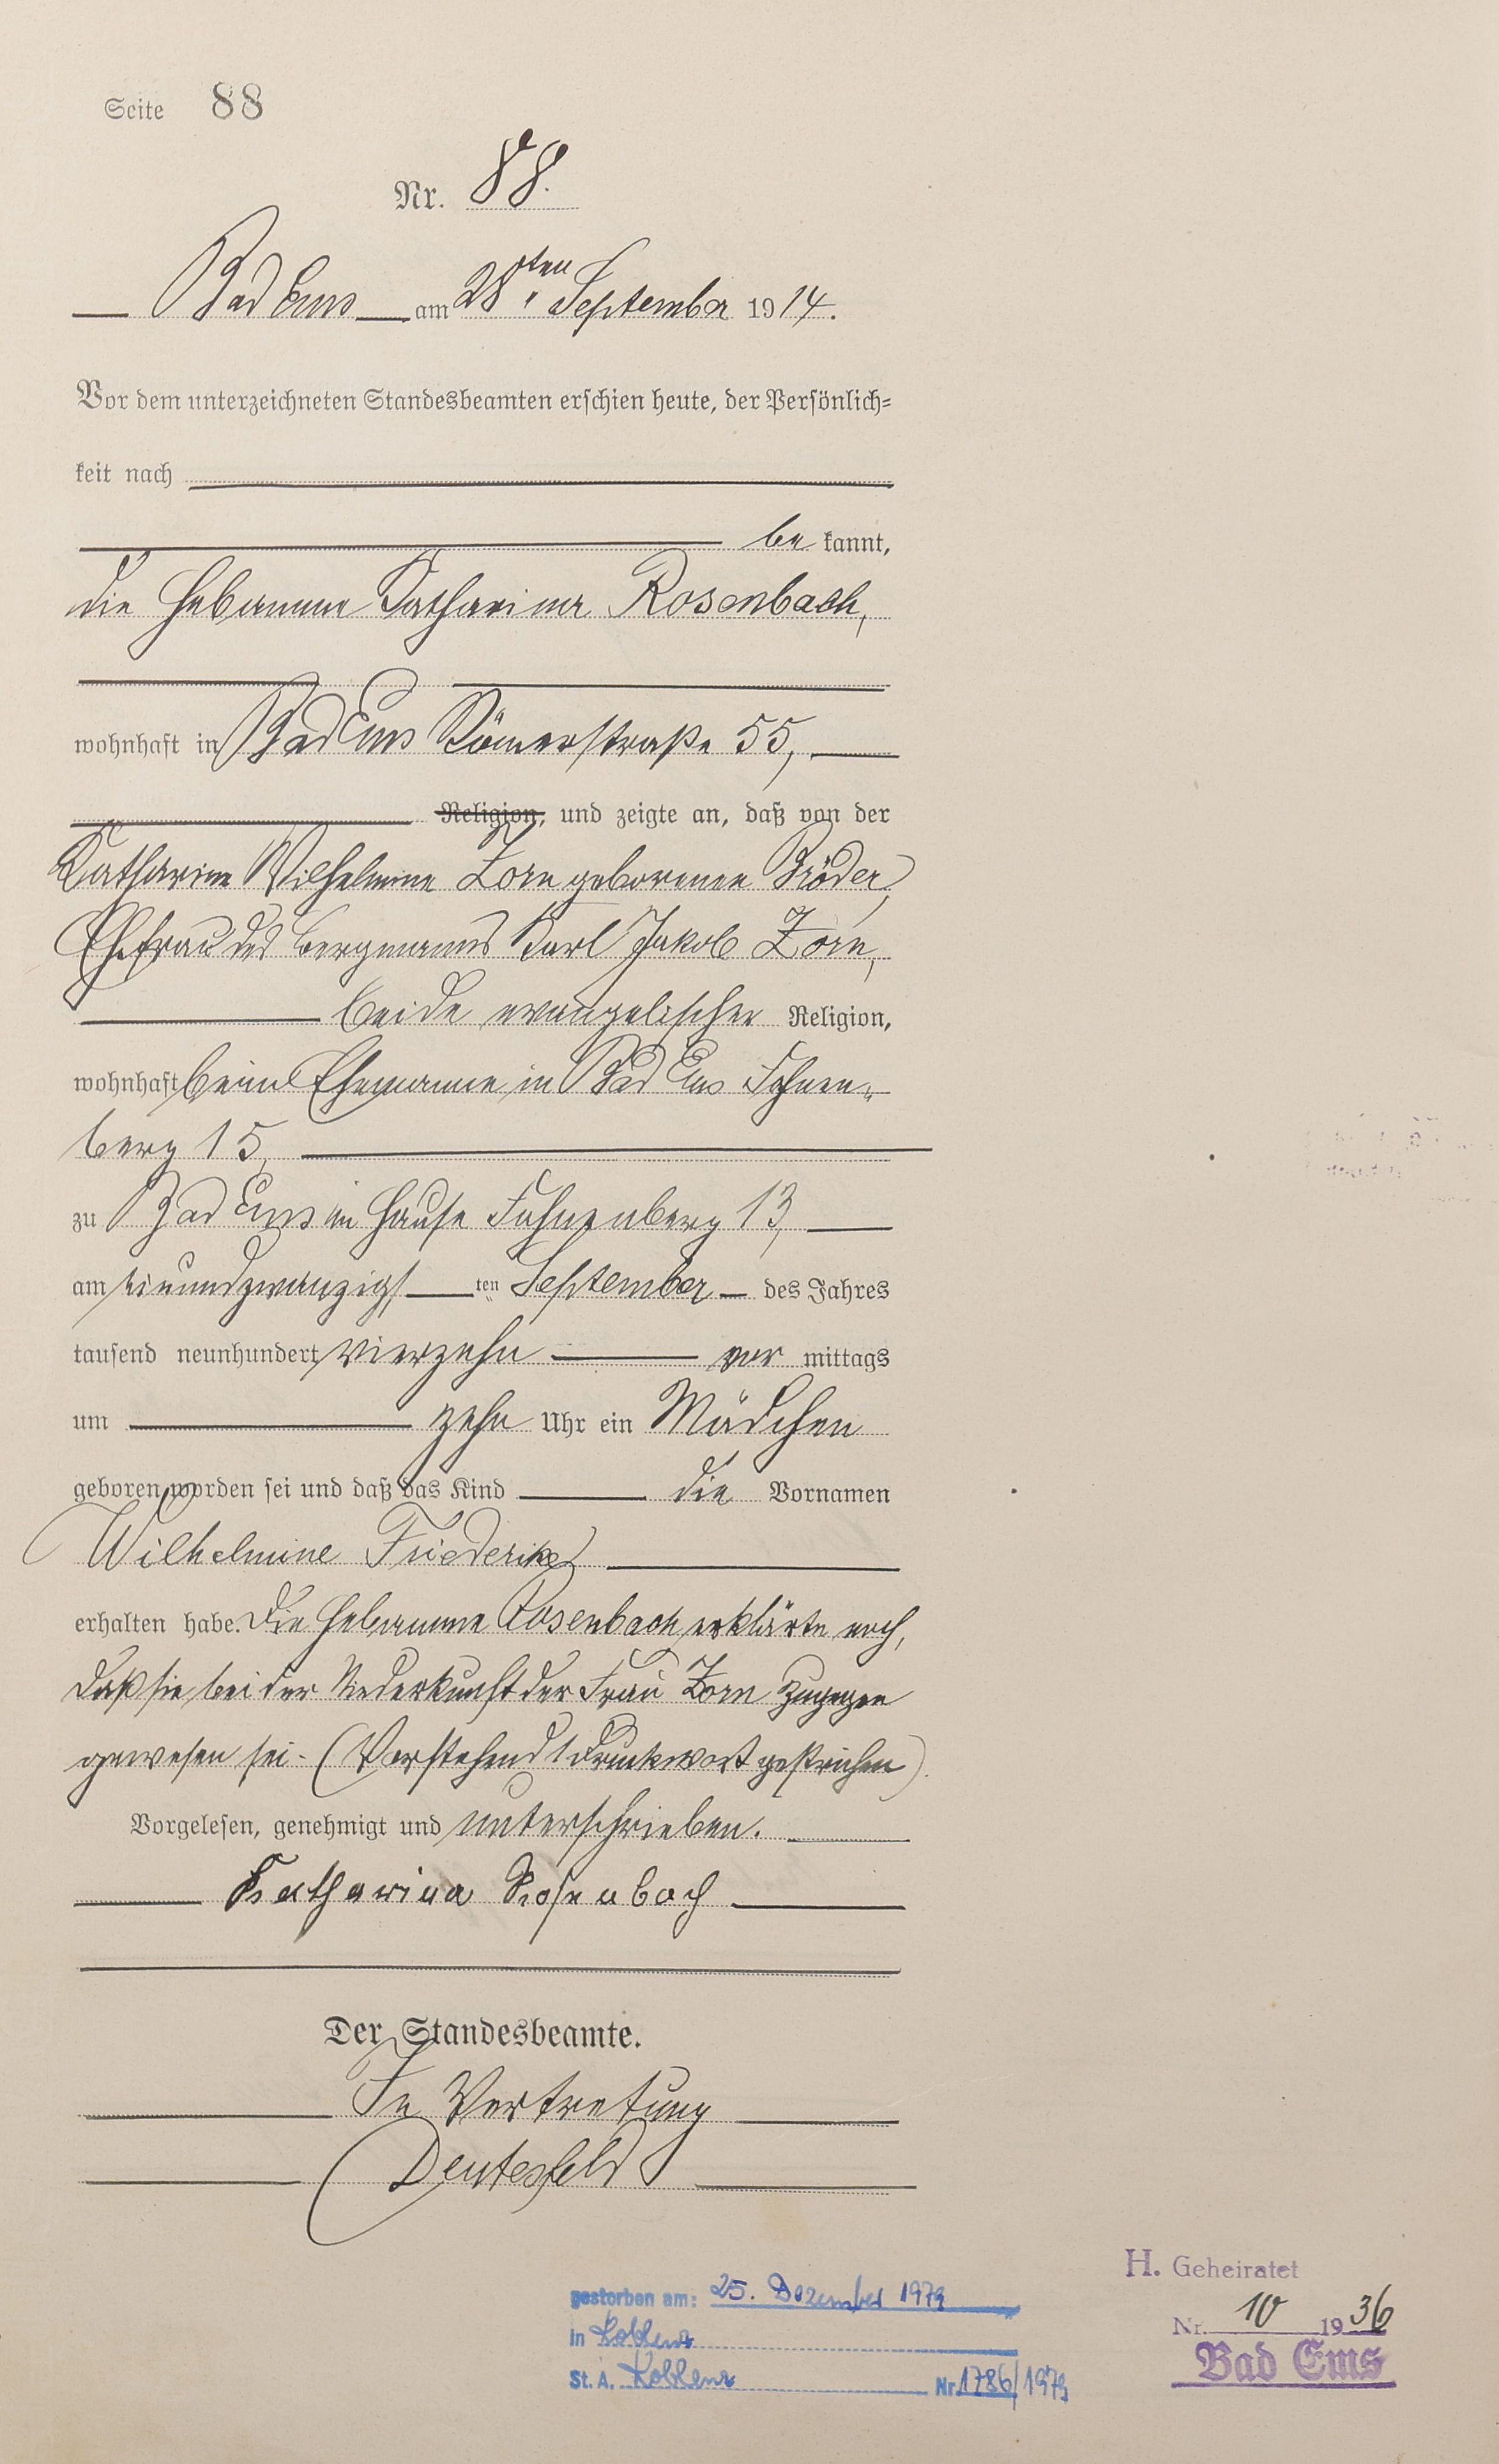 Seite 88
Nr. 88.
Bad Ems am 28ten September 1914.
Vor dem unterzeichneten Standesbeamten erschien heute, der Persönlich=
keit nach
be kannt,
die Hebamme Katharina Rosenbach,
wohnhaft in Bad Ems Römerstraße 55,
Religion, und zeigte an, daß von der
Katharine Wilhelmine Zorn geborenen Bröder,
Ehefrau des Bergmanns Karl Jakob Zorn,
beide evangelischer Religion,
wohnhaft beim Ehemanne in Bad Ems Fahnen-
berg 15,
zu Bad Ems im Hause Fahnenberg 13,
am einundzwanzigsten September des Jahres
tausend neunhundert vierzehn vor mittags
um zehn Uhr ein Mädchen
geboren worden sei und daß das Kind die Vornamen
Wilhelmine Friederike
erhalten habe. Die Hebamme Rosenbach erklärte noch,
daß sie bei der Niederkunft der Frau Zorn zugegen
gewesen sei. (Vorstehend 1 Druckwort gestrichen).
Vorgelesen, genehmigt und unterschrieben.
Katharina Rosenbach
Der Standesbeamte.
In Vertretung
H. Geheiratet
gestorben am: 25. Dezember 1979
Nr. 10 1936
in Koblenz
Bad Ems
St. A. Koblenz Nr 1786/1979